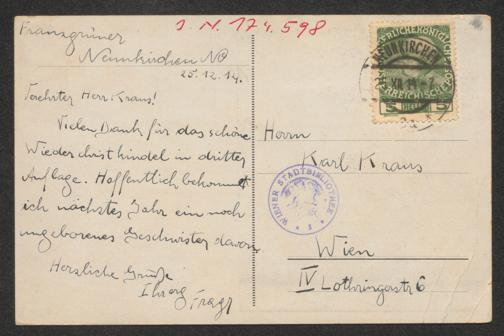 I.N. 174.598
Franzgrüner
Neunkirchen NÖ
25.12.14.
Verehrter Herr Kraus!
Vielen Dank für das schöne
Wiederchristkindel in dritter
Auflage. Hoffentlich bekommt
ich nächstes Jahr ein noch
ungeborenes Geschwister davon
Herzliche Grüße
Ihr
NEUNKIRCHEN
5
WIENER STADTBIBLIOTHEK
Herrn
Karl Kraus
Wien
IV Lothringerstr 6